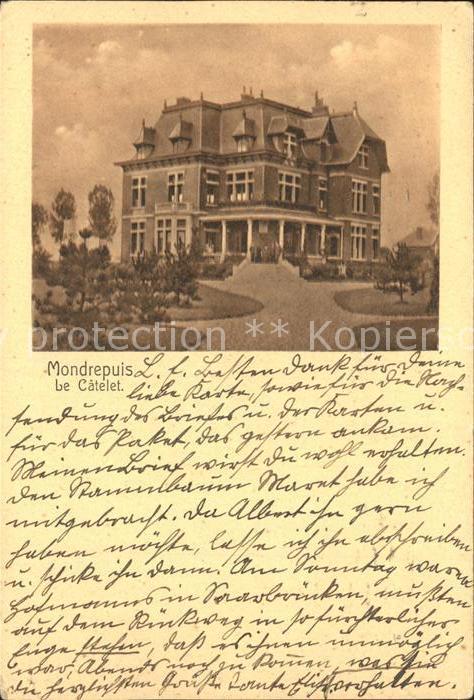 Mondrepuis
Le Câtelet.
L. E. Besten Dank für Deine
liebe Karte, sowie für die Nach-
sendung des Briefes u. der Karten u.
für das Paket, das gestern ankam.
Meinen Brief wirst Du wohl erhalten.
Den Stammbaum Maret habe ich
mitgebracht. Da Albert ihn gern
haben möchte, lasse ich ihn abschreiben
u. schicke ihn dann. Am Sonntag waren
Hofmanns in Saarbrücken, mußten
auf dem Rückweg in so fürchterlicher
Enge stehen, daß es ihnen unmöglich
war, Abends noch zu kommen,
die herzlichsten Grüße Tante
protection ** Kopiers